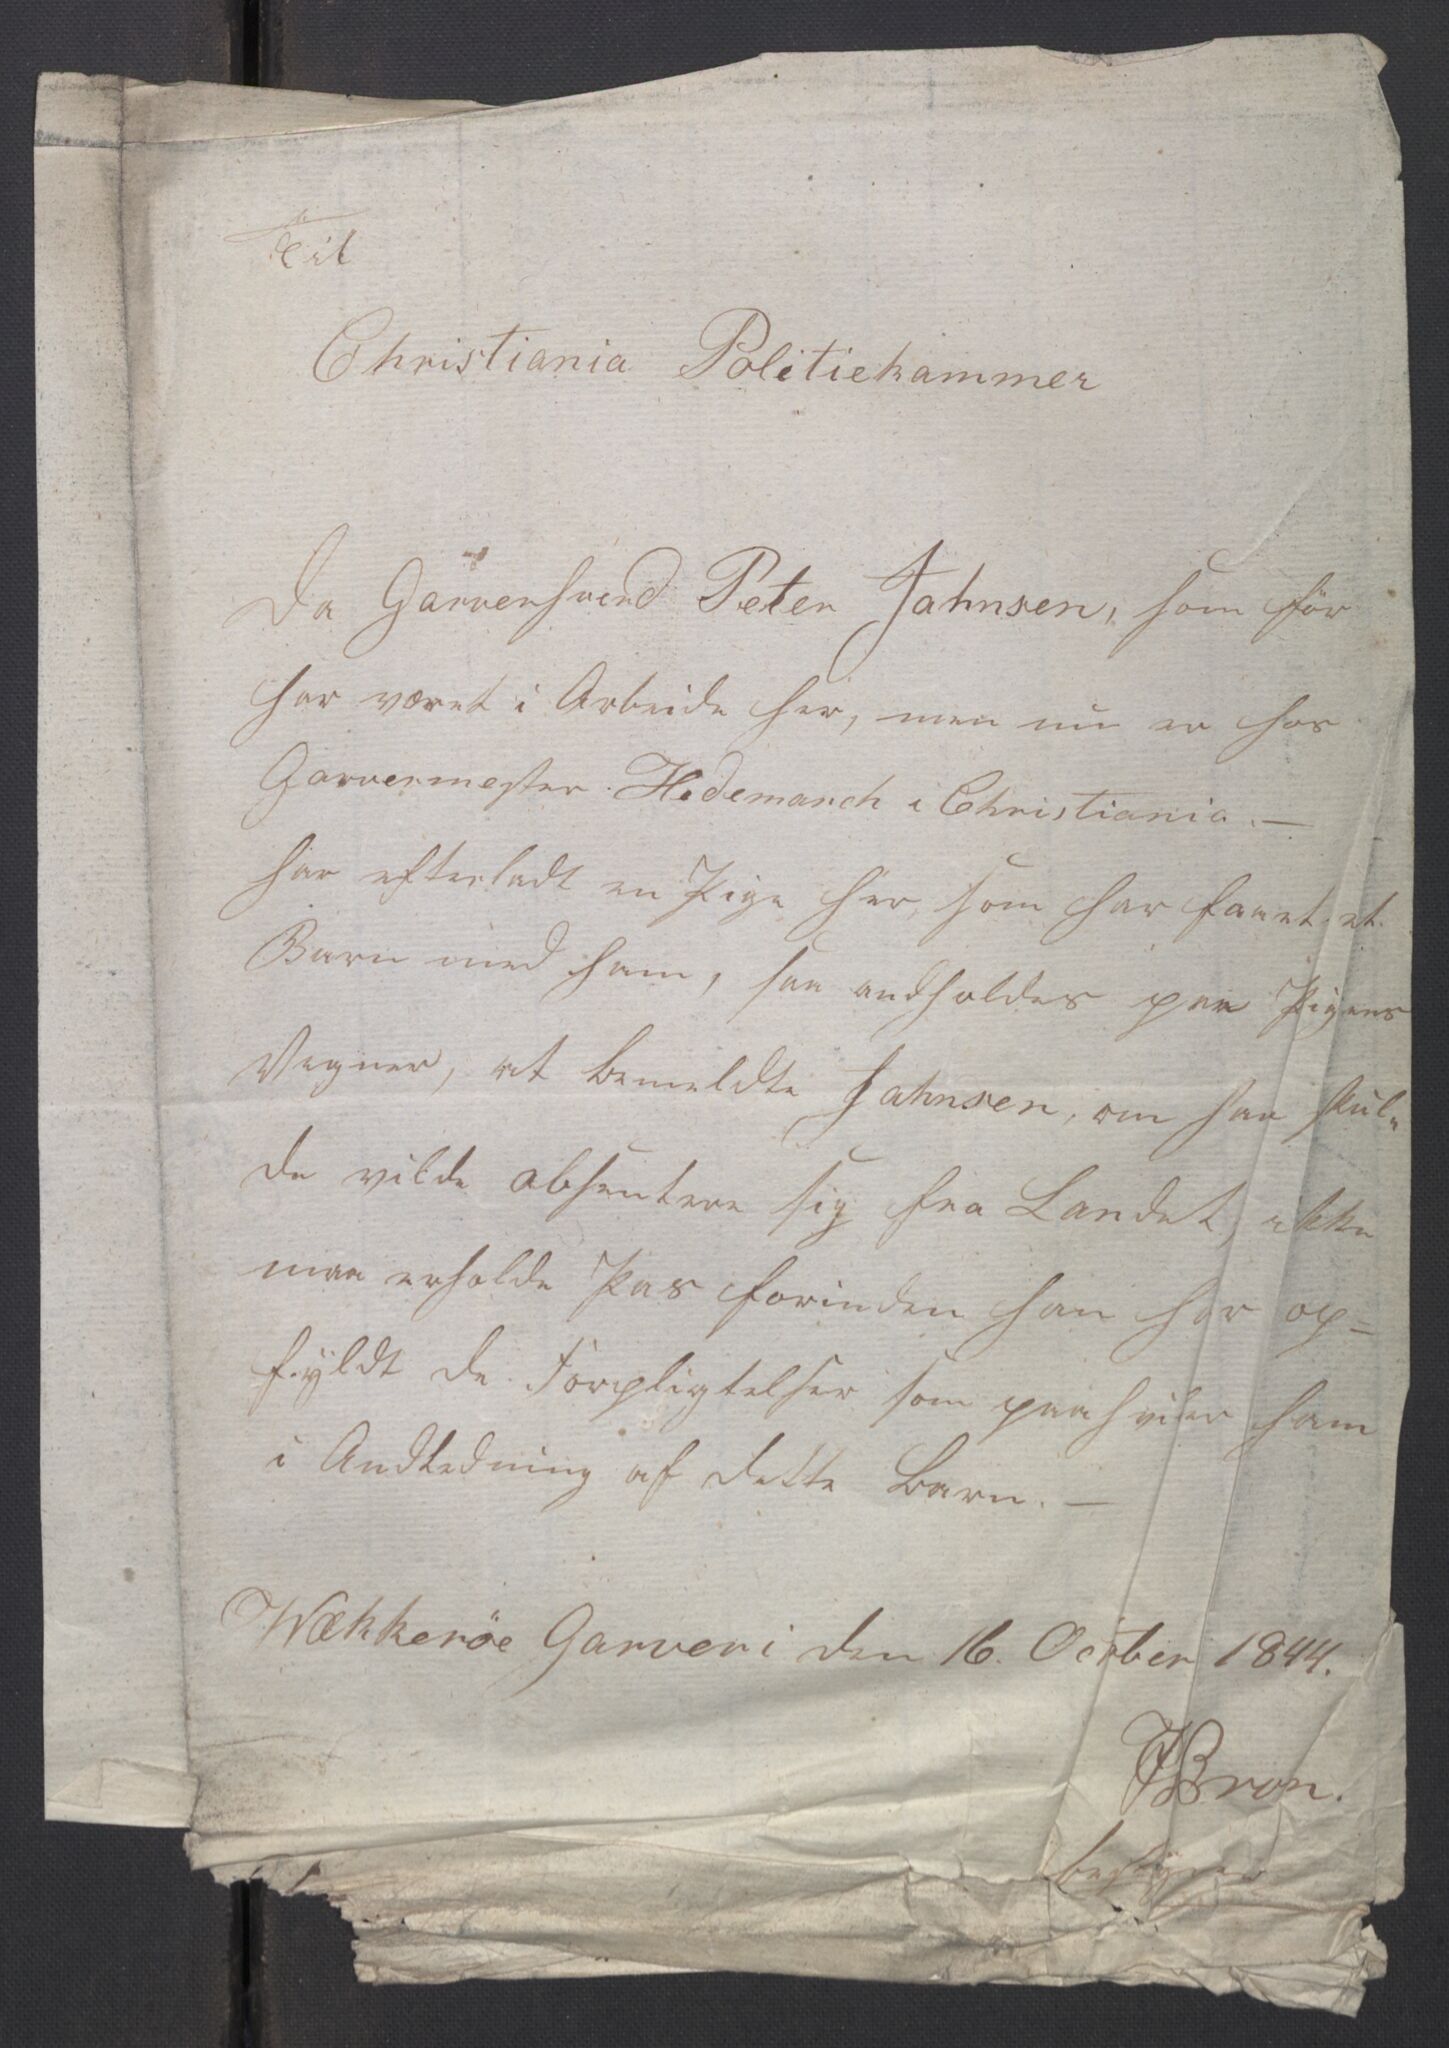 Til
Christiania Politiekammer
Da Garversvend Peter Jahnsen, som för
har været i Arbeide her, men nu er hos
Garvermester Hedemarck i Christiania. —
har efterladt en Pige her, som har faaet et
Barn med ham, saa andholdes paa Pigens
Vegner, at bemeldte Jahnsen, om han skul-
de vilde absentere sig fra Landet, ikke
maa erholde Pas forinden han har op=
fyldt de Forpligtelser som paahviler ham
i Andledning af dette Barn. —
Wækkeröe Garveri den 16. October 1844.
JBron.
bestyrer